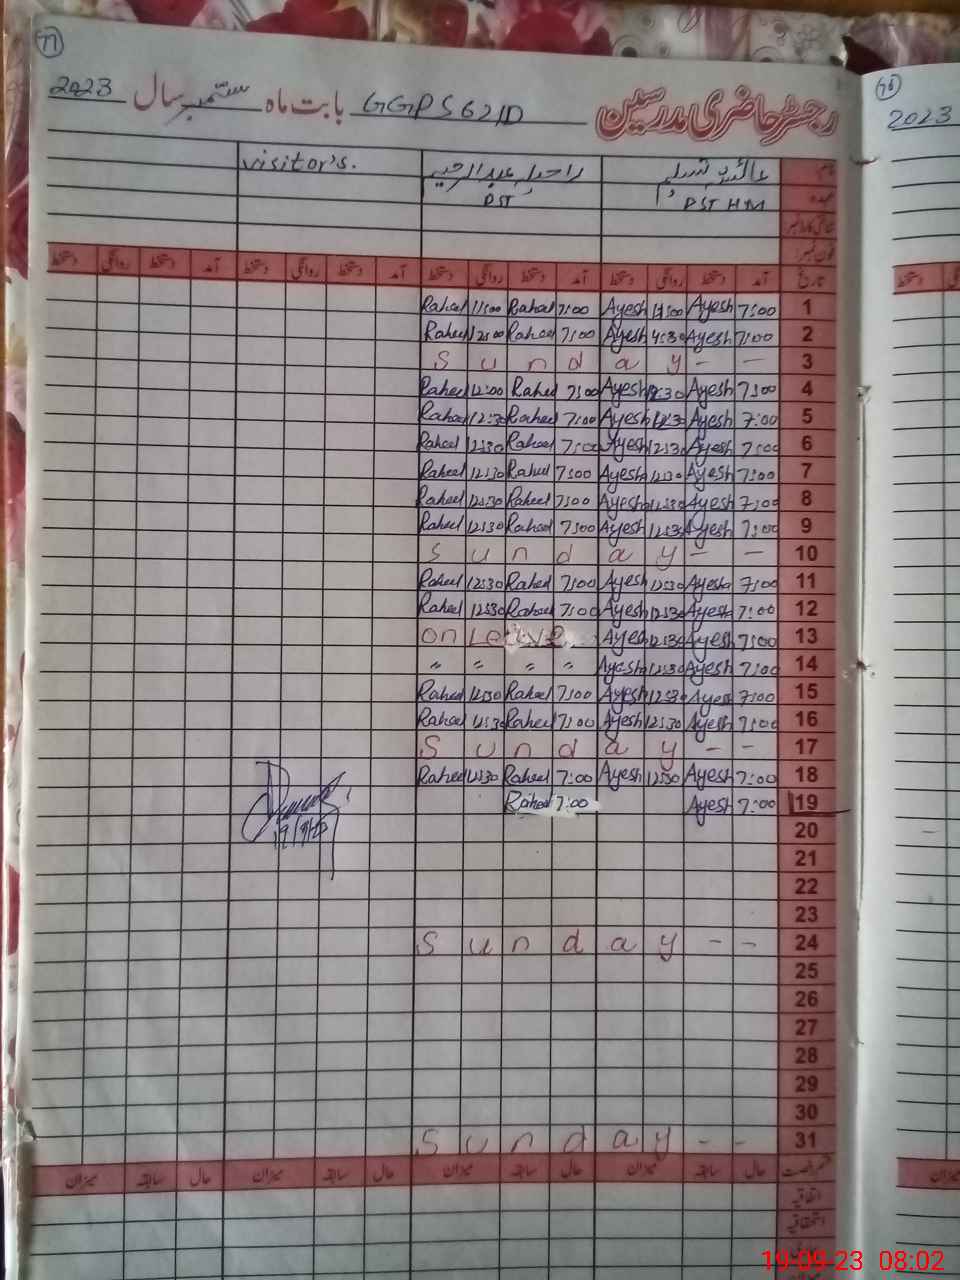 77
رجسٹر حاضری مدرسین GGPS 621D بابت ماہ ستمبر سال 2023
76
2023
نام عائشہ تسلیم راحیلہ عبدالرحیم Visitor's.
عہدہ PST HM PST
شناختی کارڈ نمبر
فون نمبر
تاریخ آمد دستخط روانگی دستخط آمد دستخط روانگی دستخط آمد دستخط روانگی دستخط آمد دستخط روانگی دستخط
Raheel 11:00 Raheel 7:00 Ayesh 11:00 Ayesh 7:00 1
Raheel 12:00 Raheel 7:00 Ayesh Ayesh 7:00 2
S u n d a y - - 3
Raheel 12:00 Raheel 7:00 Ayesh 12:30 Ayesh 7:00 4
Raheel 12:30 Raheel 7:00 Ayesh 12:30 Ayesh 7:00 5
Raheel 12:30 Raheel 7:00 Ayesh 12:30 Ayesh 7:00 6
Raheel 12:30 Raheel 7:00 Ayesha 12:30 Ayesh 7:00 7
Raheel 12:30 Raheel 7:00 Ayesha 12:30 Ayesh 7:00 8
Raheel 12:30 Raheel 7:00 Ayesh 12:30 Ayesh 7:00 9
S u n d a y - - 10
Raheel 12:30 Raheel 7:00 Ayesh 12:30 Ayesha 7:00 11
Raheel 12:30 Raheel 7:00 Ayesh 12:30 Ayesha 7:00 12
on Leave Ayesh 12:30 Ayesh 7:00 13
" " " " Ayesha 12:30 Ayesh 7:00 14
Raheel 12:30 Raheel 7:00 Ayesh 12:30 Ayesh 7:00 15
Raheel 12:30 Raheel 7:00 Ayesh 12:30 Ayesh 7:00 16
S u n d a y - - 17
Raheel 12:30 Raheel 7:00 Ayesh 12:30 Ayesh 7:00 18
Raheel 7:00 Ayesh 7:00 19
20
21
22
23
S u n d a y - - 24
25
26
27
28
29
30
S u n d a y - - 31
قسم رخصت حال سابقہ میزان حال سابقہ میزان حال سابقہ میزان حال سابقہ میزان
اتفاقیہ
استحقاقیہ
19-09-23 08:02